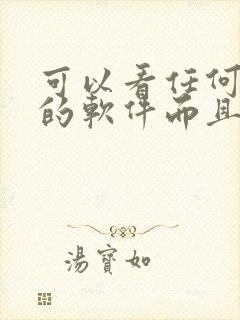 可以看任何
的軟件而且
湯寶如